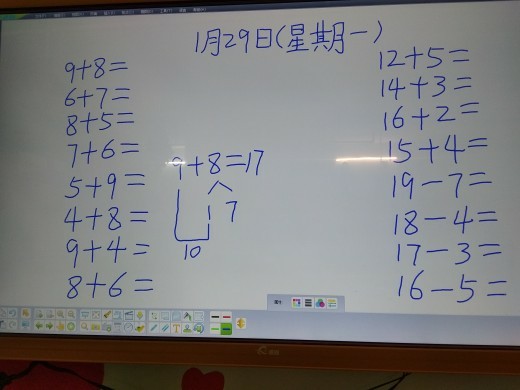 1月29日(星期一)
9+8=
6+7=
8+5=
7+6=
5+9=
4+8=
9+4=
8+6=
9+8=17
1 7
10
12+5=
14+3=
16+2=
15+4=
19-7=
18-4=
17-3=
16-5=